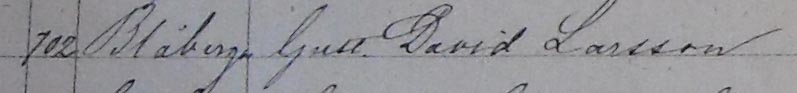 702 Blåberga Gust. David Larsson